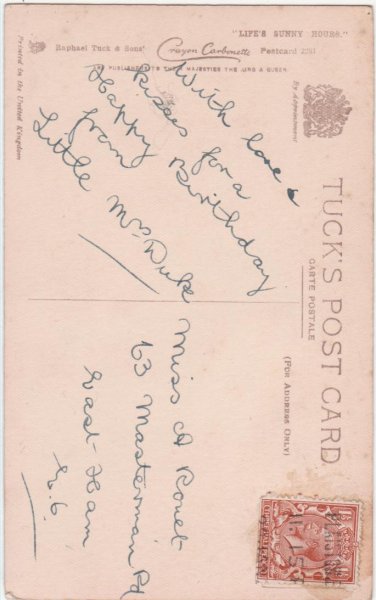 "LIFE'S SUNNY HOURS."
Raphael Tuck & Sons' Crayon Carbonette Postcard
ART PUBLISHERS TO THEIR MAJESTIES THE KING & QUEEN.
By Appointment
Printed in the United Kingdom
TUCK'S POST CARD
CARTE POSTALE
(FOR ADDRESS ONLY)
With love &
Kisses for a
Happy Birthday
from
Little Mrs Duke
Miss A
63 Masterman Rd
East Ham
E.6.